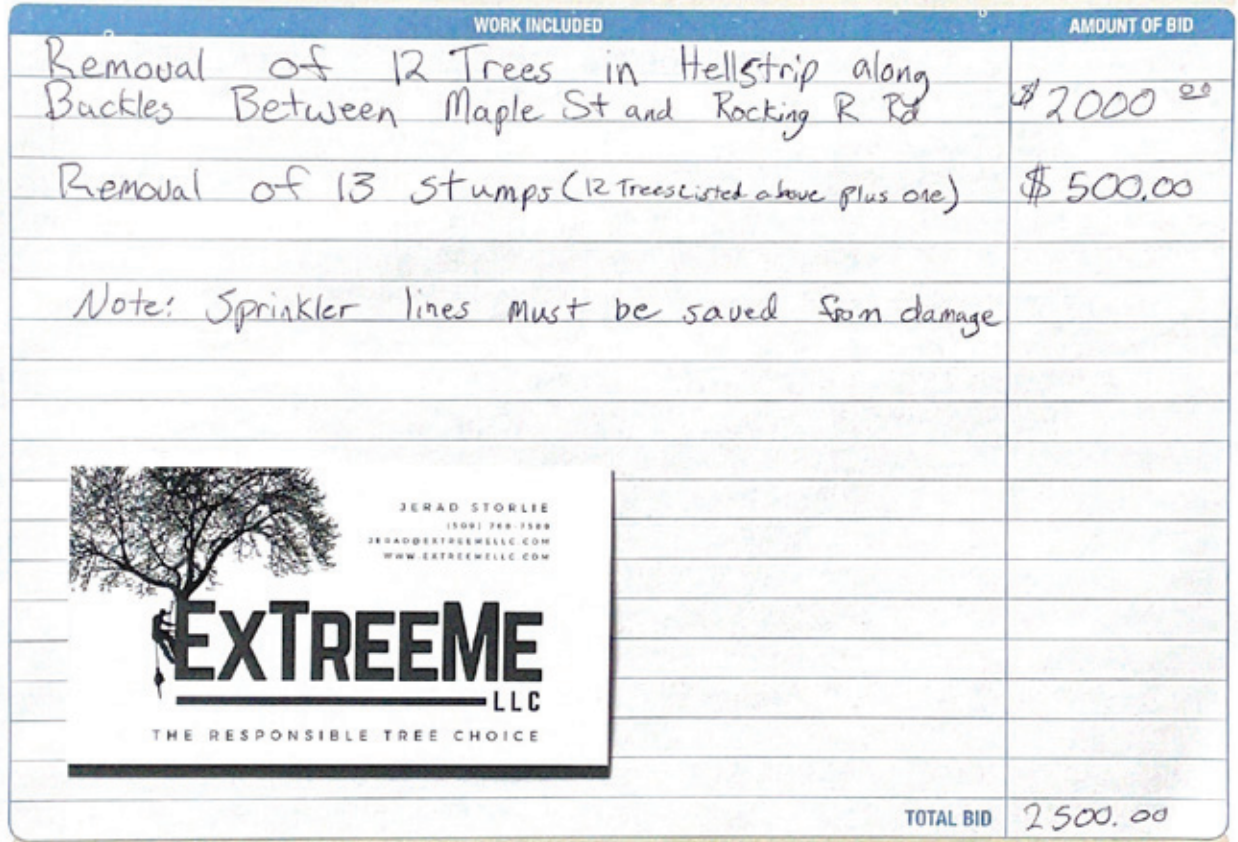 WORK INCLUDED AMOUNT OF BID
Removal of 12 Trees in Hellstrip along
Buckles Between Maple St and Rocking R Rd $2000 00
Removal of 13 stumps (12 Trees Listed above plus one) $500.00
Note: Sprinkler lines must be saved from damage
JERAD STORLIE
JERAD@EXTREEMELLC.COM
WWW.EXTREEMELLC.COM
EXTREEME
LLC
THE RESPONSIBLE TREE CHOICE
TOTAL BID 2500.00